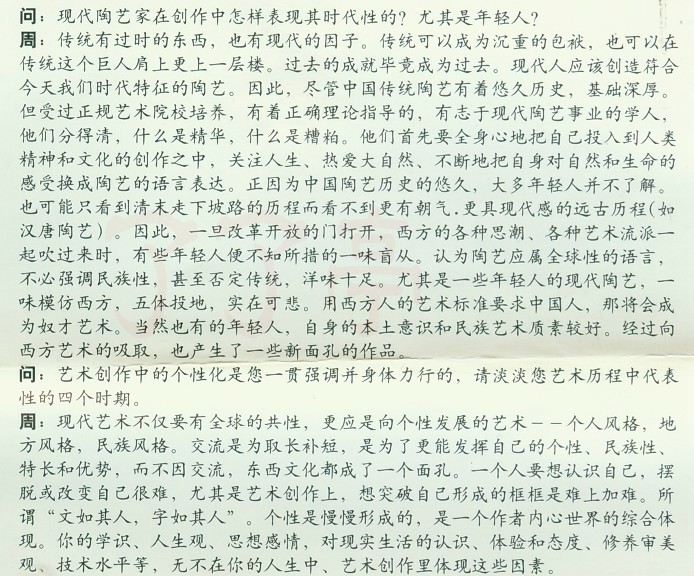 问：现代陶艺家在创作中怎样表现其时代性的？尤其是年轻人？
周：传统有过时的东西，也有现代的因子。传统可以成为沉重的包袱，也可以在
传统这个巨人肩上更上一层楼。过去的成就毕竟成为过去。现代人应该创造符合
今天我们时代特征的陶艺。因此，尽管中国传统陶艺有着悠久历史，基础深厚。
但受过正规艺术院校培养，有着正确理论指导的，有志于现代陶艺事业的学人，
他们分得清，什么是精华，什么是糟粕。他们首先要全身心地把自己投入到人类
精神和文化的创作之中，关注人生、热爱大自然、不断地把自身对自然和生命的
感受换成陶艺的语言表达。正因为中国陶艺历史的悠久，大多年轻人并不了解。
也可能只看到清末走下坡路的历程而看不到更有朝气.更具现代感的远古历程(如
汉唐陶艺)。因此，一旦改革开放的门打开，西方的各种思潮、各种艺术流派一
起吹过来时，有些年轻人便不知所措的一味盲从。认为陶艺应属全球性的语言，
不必强调民族性，甚至否定传统，洋味十足。尤其是一些年轻人的现代陶艺，一
味模仿西方，五体投地，实在可悲。用西方人的艺术标准要求中国人，那将会成
为奴才艺术。当然也有的年轻人，自身的本土意识和民族艺术质素较好。经过向
西方艺术的吸取，也产生了一些新面孔的作品。
问：艺术创作中的个性化是您一贯强调并身体力行的，请淡淡您艺术历程中代表
性的四个时期。
周：现代艺术不仅要有全球的共性，更应是向个性发展的艺术－－个人风格，地
方风格，民族风格。交流是为取长补短，是为了更能发挥自己的个性、民族性、
特长和优势，而不因交流，东西文化都成了一个面孔。一个人要想认识自己，摆
脱或改变自己很难，尤其是艺术创作上，想突破自己形成的框框是难上加难。所
谓“文如其人，字如其人”。个性是慢慢形成的，是一个作者内心世界的综合体
现。你的学识、人生观、思想感情，对现实生活的认识、体验和态度、修养审美
观、技术水平等，无不在你的人生中、艺术创作里体现这些因素。